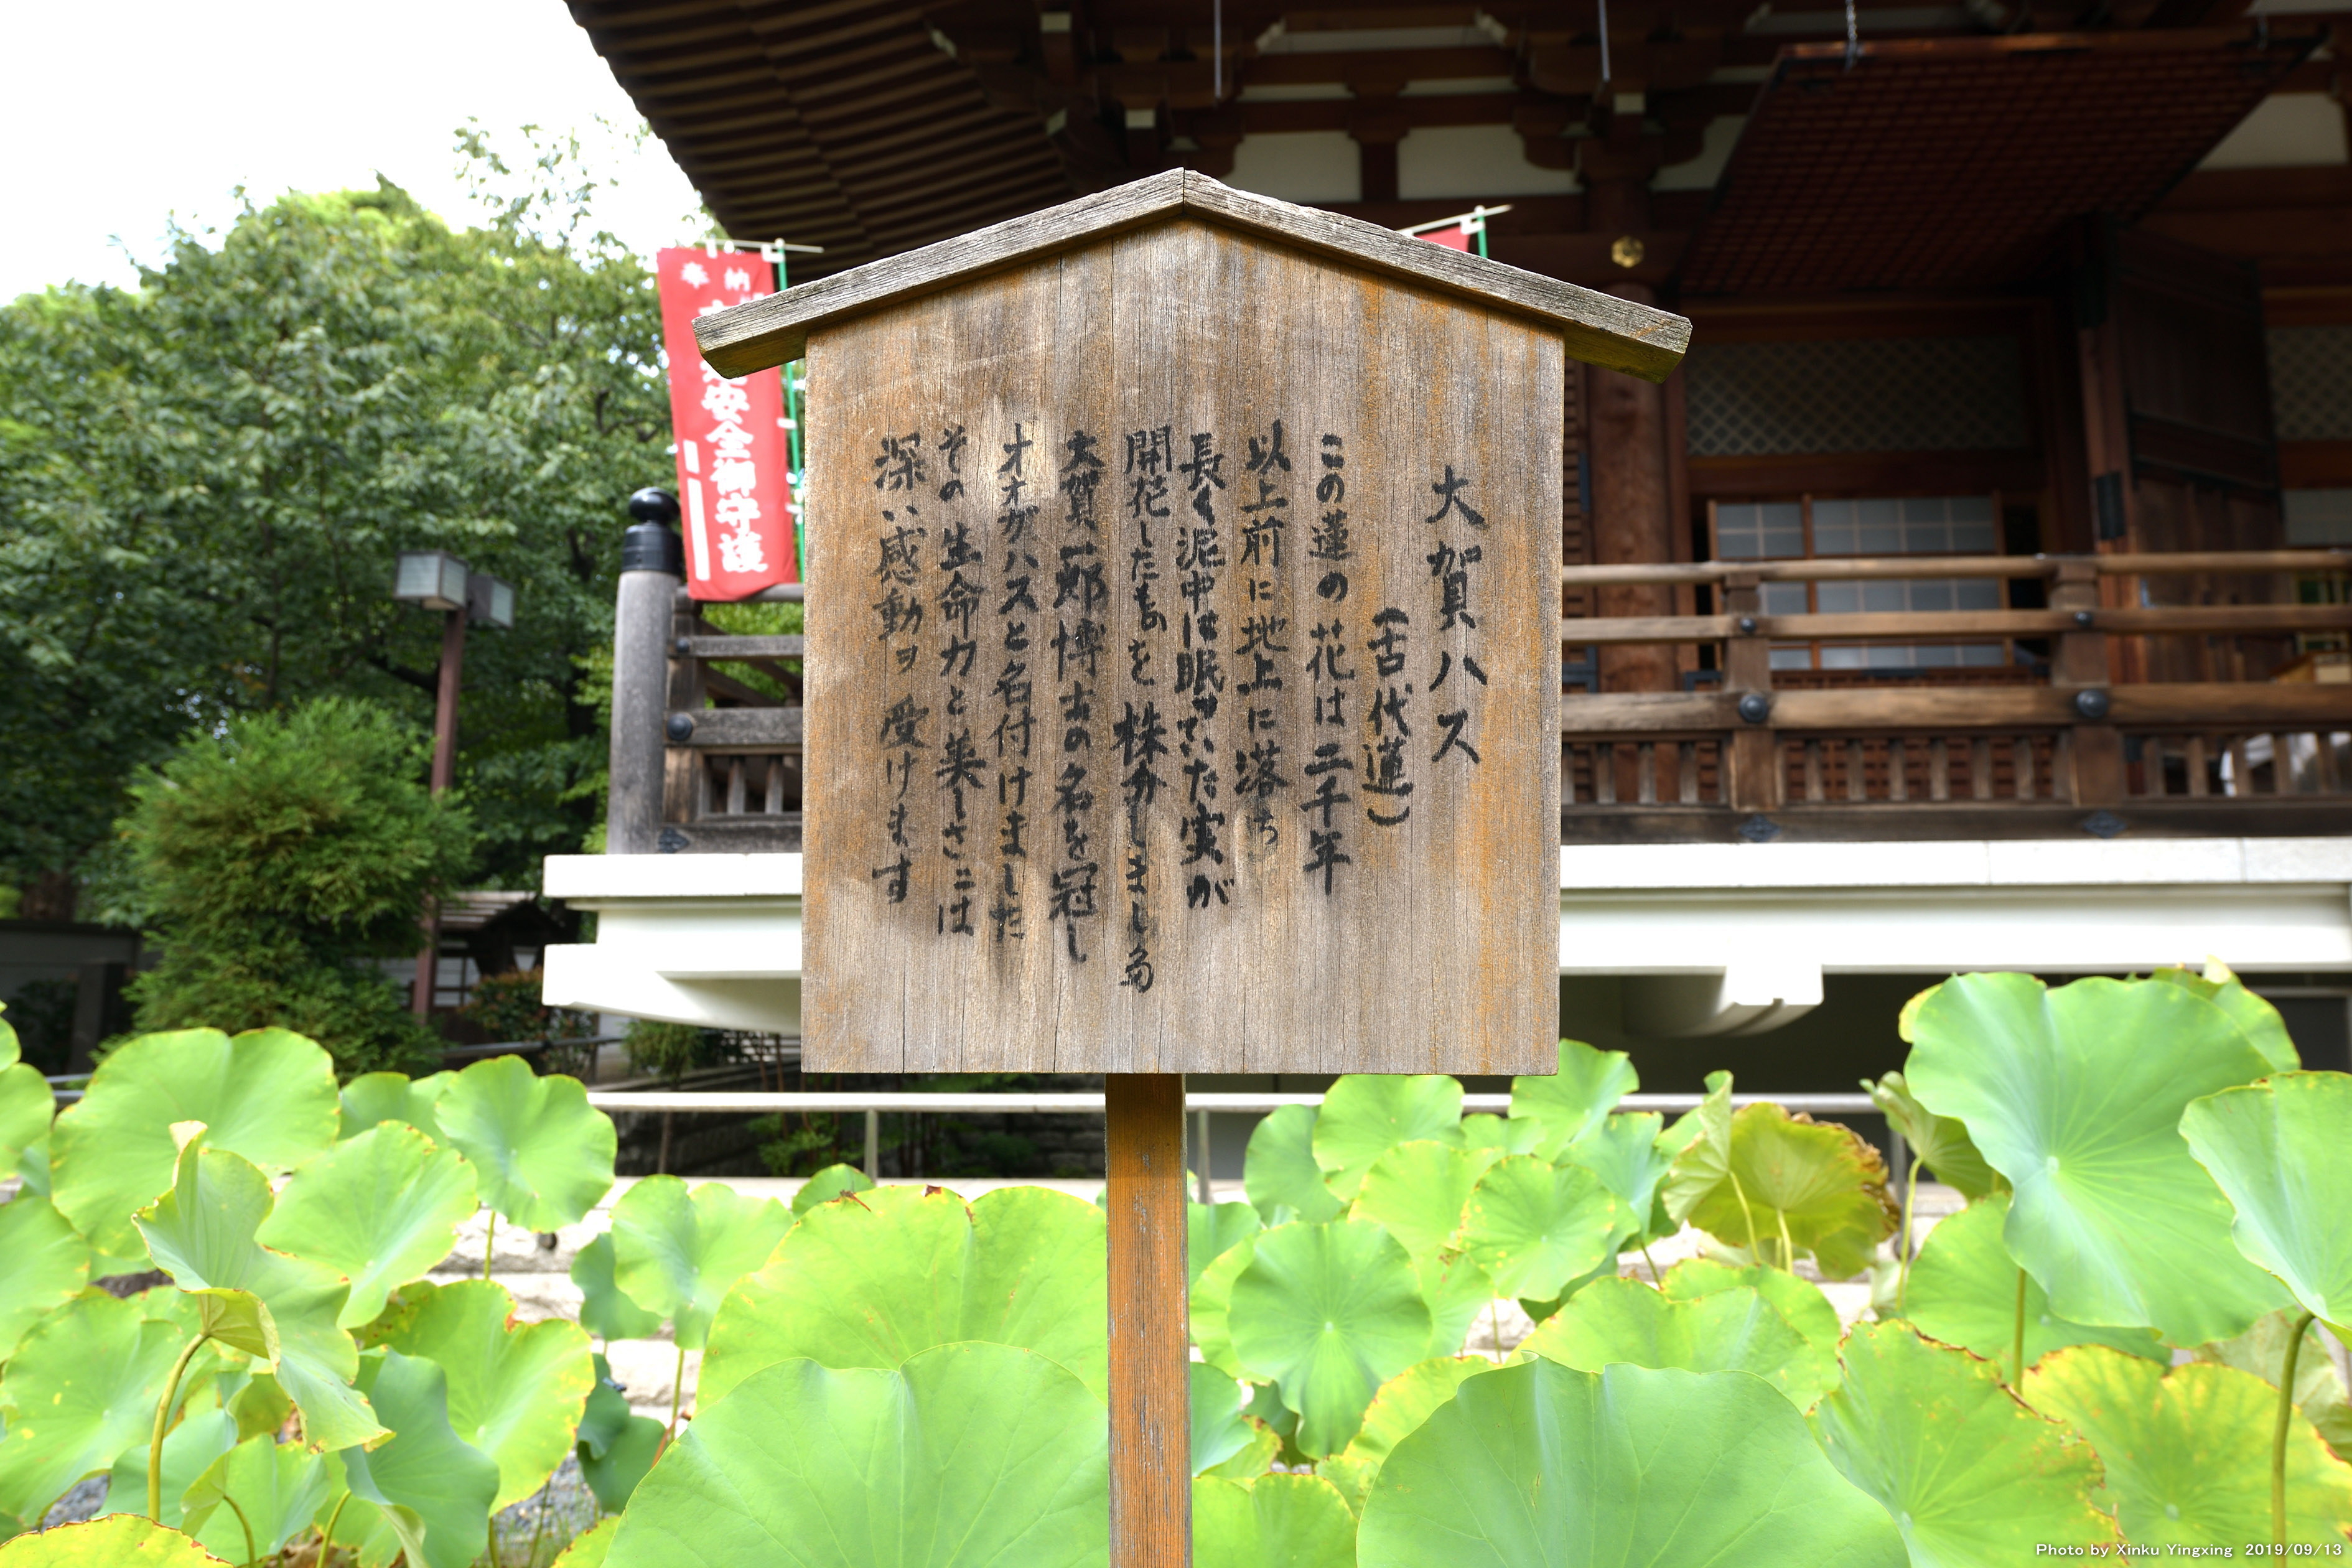 大賀ハス
(古代蓮)
この蓮の花は二千年
以上前に地上に落ち
長く泥中に眠っていた実が
開花したものを株分しました
大賀一郎博士の名を冠し
オオガハスと名付けました
その生命力と美しさには
深い感動ヲ受けます
奉納
安全御守護
Photo by Xinku Yingxing 2019/09/13